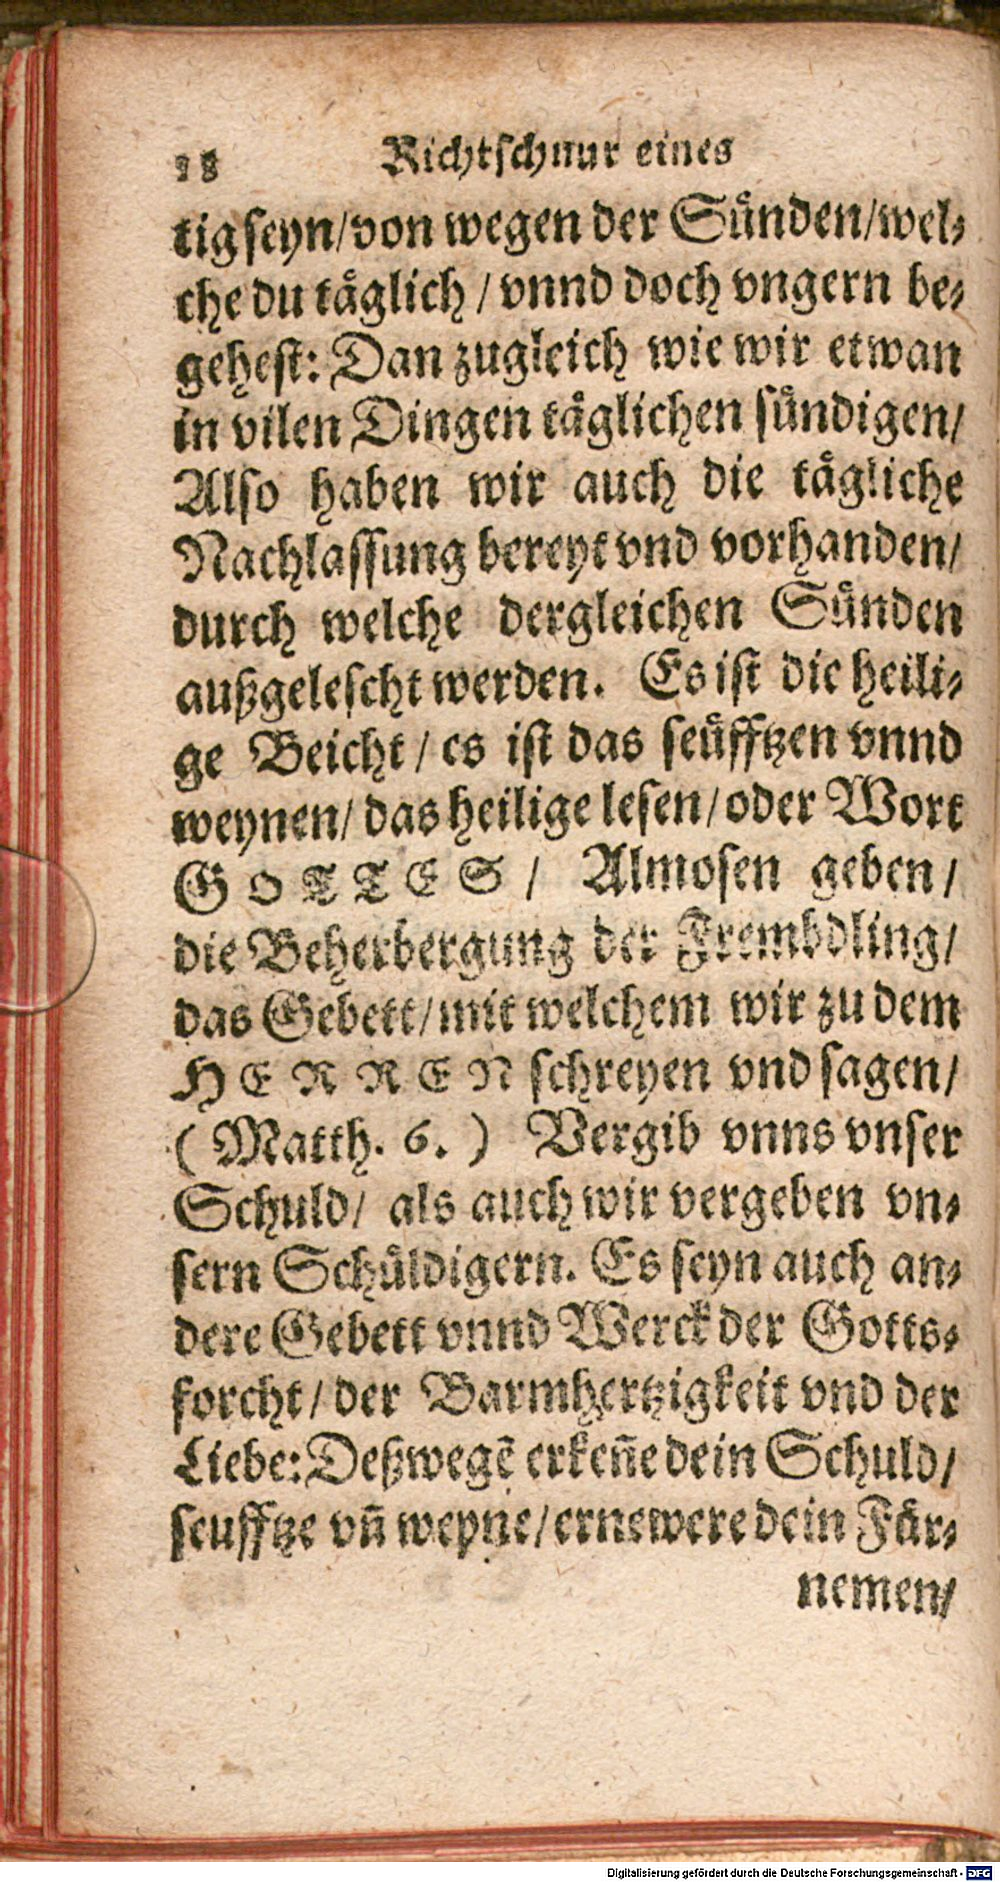 18 Richtschnur eines
tig seyn/von wegen der Sünden/wel-
che du täglich / vnnd doch vngern be-
gehest: Dan zugleich wie wir etwan
in vilen Dingen täglichen sündigen/
Also haben wir auch die tägliche
Nachlassung bereyt vnd vorhanden/
durch welche dergleichen Sünden
außgelescht werden. Es ist die heili-
ge Beicht / es ist das seüfftzen vnnd
weynen/ das heilige lesen/oder Wort
GOTTES / Almosen geben/
die Beherbergung der Frembdling/
das Gebett/mit welchem wir zu dem
HERREN schreyen vnd sagen/
(Matth. 6.) Vergib vnns vnser
Schuld/ als auch wir vergeben vn-
sern Schüldigern. Es seyn auch an-
dere Gebett vnnd Werck der Gotts-
forcht / der Barmhertzigkeit vnd der
Liebe: Deßwegē erkeñe dein Schuld/
seufftze vñ weyne/ernewere dein Für-
nemen/
Digitalisierung gefördert durch die Deutsche Forschungsgemeinschaft - DFG